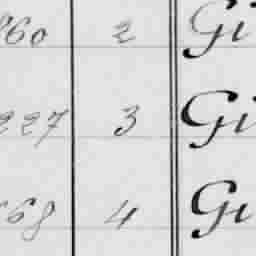 60 2 Gi
227 3 Gi
68 4 Gi